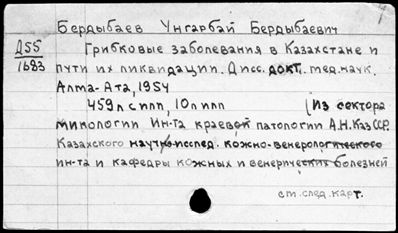 Бердыбаев Унгарбай Бердыбаевич
Д55
1683
Грибковые заболевания в Казахстане и
пути их ликвидации. Дисс. докт. мед. наук.
Алма-Ата, 1954
459л с илл, 10л илл
(Из сектора
микологии Ин-та краевой патологии А.Н.Каз ССР.
Казахского научно-исслед. кожно-венерологического
ин-та и кафедры кожных и венерических болезней
см. след. карт.